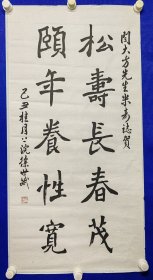 閔大方先生米壽誌賀
松壽長春茂
頤年養性寬
己丑桂月上沈徐世